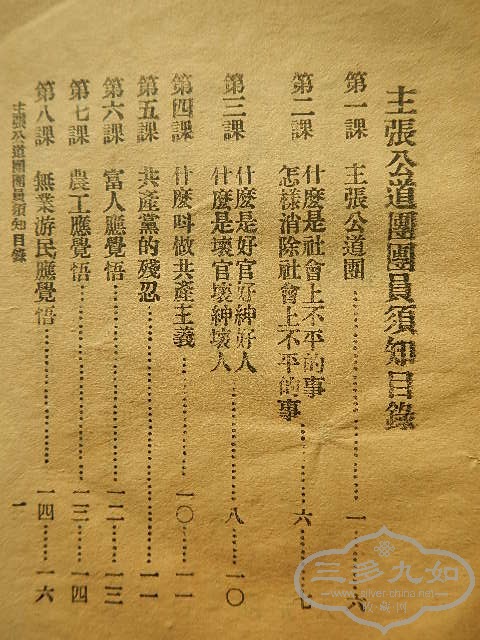 主張公道團團員須知目錄
第一課 主張公道團……………一……六
第二課 什麼是社會上不平的事
怎樣消除社會上不平的事……六……七
第三課 什麼是好官好紳好人
什麼是壞官壞紳壞人……八……一〇
第四課 什麼叫做共產主義……一〇……一一
第五課 共產黨的殘忍……一一
第六課 富人應覺悟……一二……一三
第七課 農工應覺悟……一三……一四
第八課 無業游民應覺悟……一四……一六
主張公道團團員須知目錄
一
三多九如
www.silver-china.net
收藏网